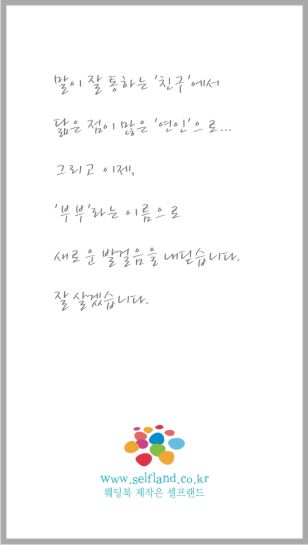 말이 잘 통하는 '친구'에서
닮은 점이 많은 '연인'으로...
그리고 이제,
'부부'라는 이름으로
새로운 발걸음을 내딛습니다.
잘 살겠습니다.
www.selfland.co.kr
웨딩북 제작은 셀프랜드